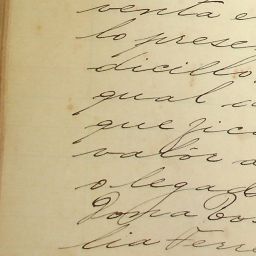 venta e
lo prese
dicillo.
qual a
que fica
valôr d
o legad
Dona Bo
lia Ferre